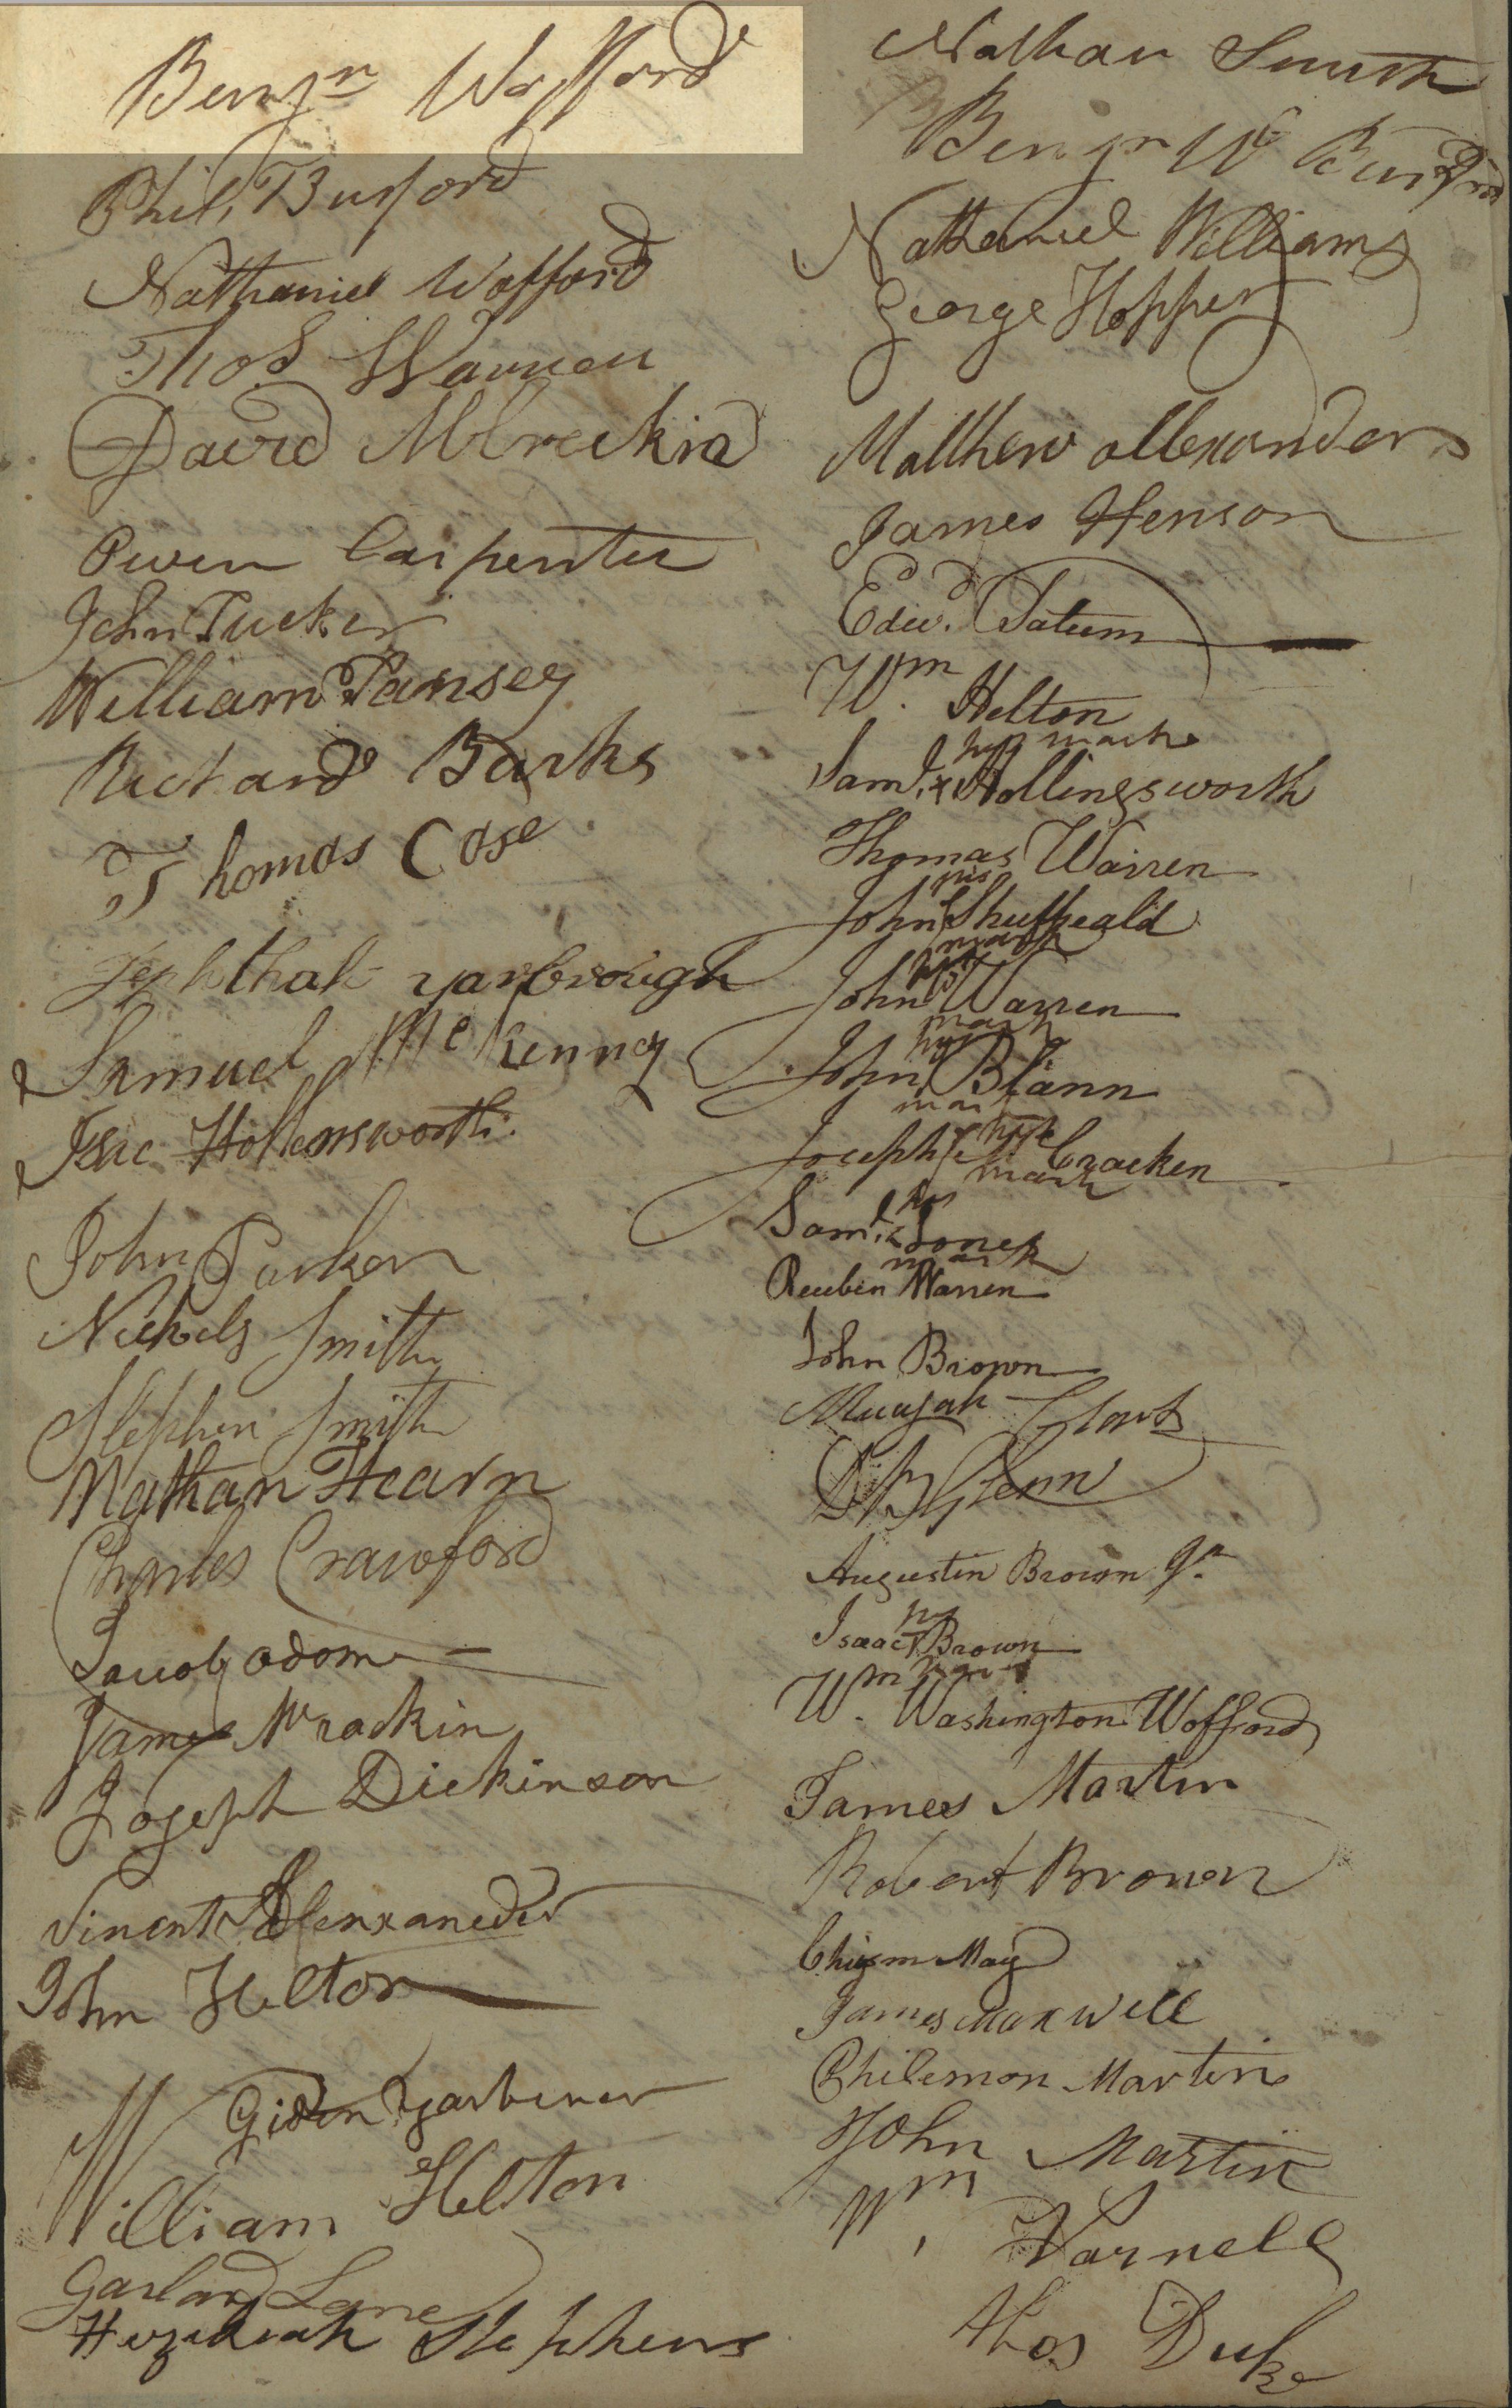 Benjn Wofford
Phil, Burford
Nathaniel Wofford
Thos Warren
David McCreckin
Owen Carpenter
John Tucker
William Tansey
Richard Barks
Thomas Case
Jephthah yarbrough
Samuel McKenney
Isac Hollensworth
John Parker
Nichols Smith
Stephen Smith
Nathan Hearn
Charles Crawford
Jacob odom
James Mcrackin
Joseph Dickinson
Vincent Alenxaneder
John Helton
Giden
William Helton
Garland Lane
Hezekiah Stephens
Nathan Smith
Benjn Mc Burford
Nathaniel Williams
George Hopper
Matthew allexander
James Henson
Edwd. Tatum
Wm. Helton
Saml. his x mark Hollingsworth
Thomas Warren
John his mark
John his mark Warren
John his mark Blann
Joseph his mark McCracken
Saml. his x mark Jones
Reuben Warren
John Brown
D B Glenn
Augustin Brown Jr.
Isaac his x mark Brown
Wm. Washington Wofford
James Martin
Robert Brown
Chism May
James Maxwell
Philemon Martin
John Martin
Wm. Varnell
thos Duke